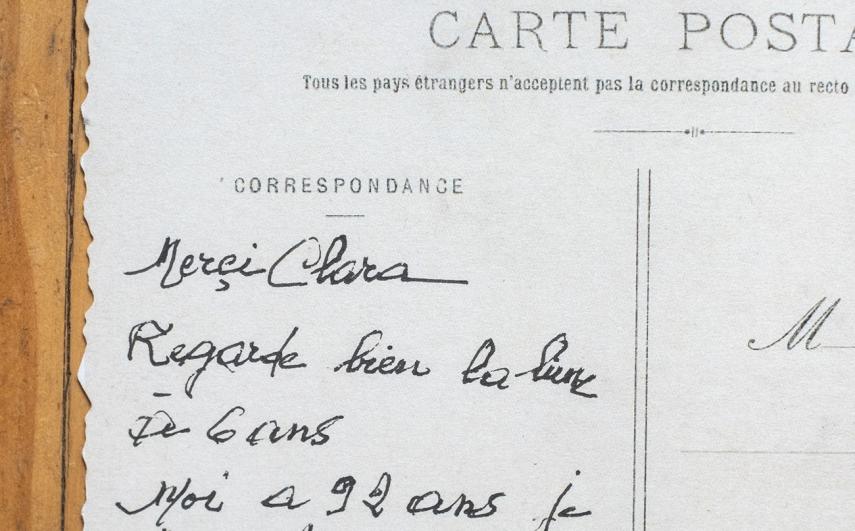 CARTE POSTA
Tous les pays étrangers n'acceptent pas la correspondance au recto
CORRESPONDANCE
Merçi Clara
Regarde bien la lune
M
6 ans
Moi a 92 ans je